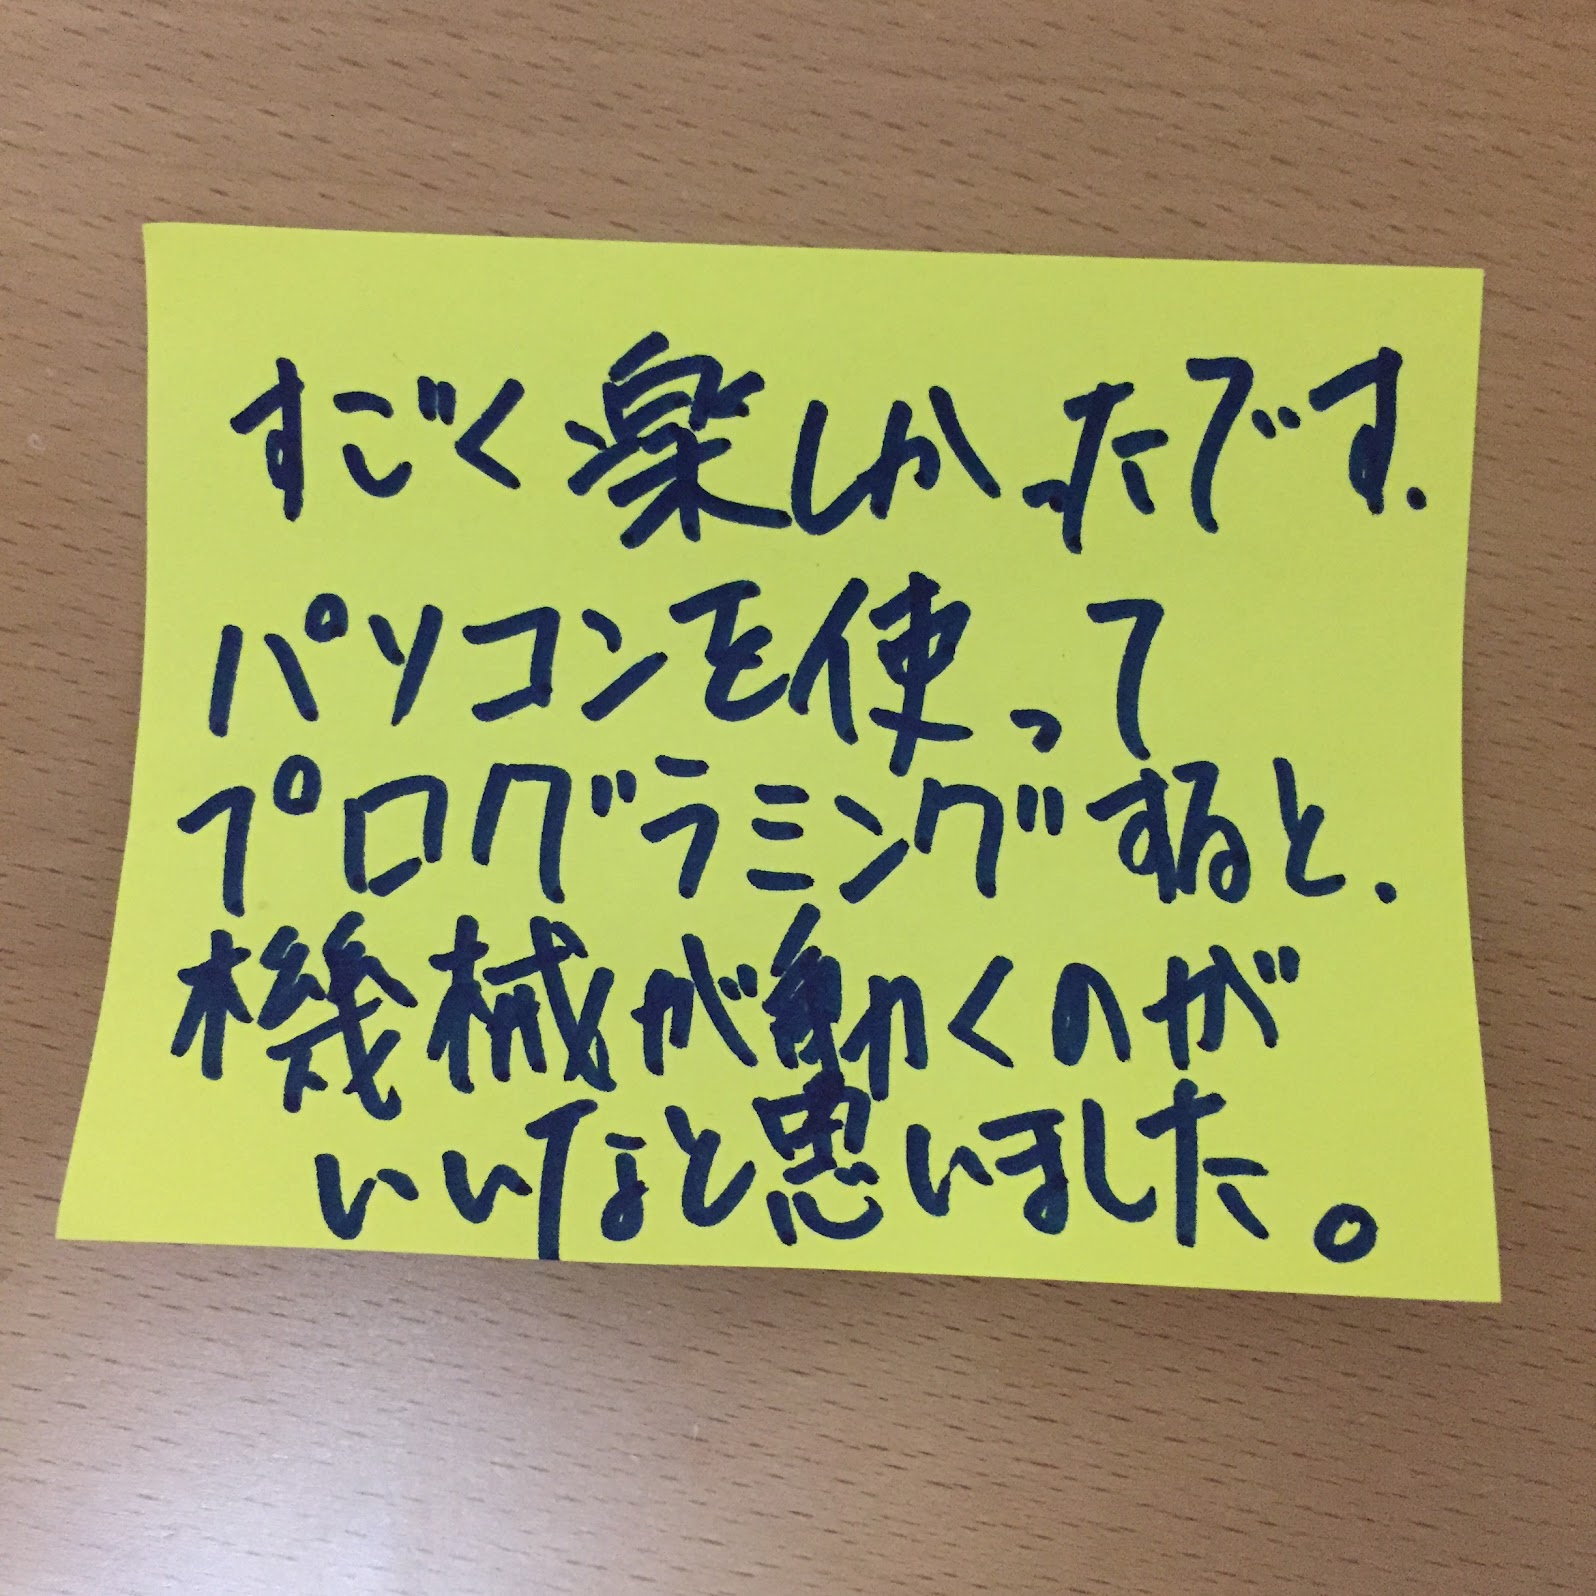 すごく楽しかったです.
パソコンを使って
プログラミングすると.
機械が動くのが
いいなと思いました。